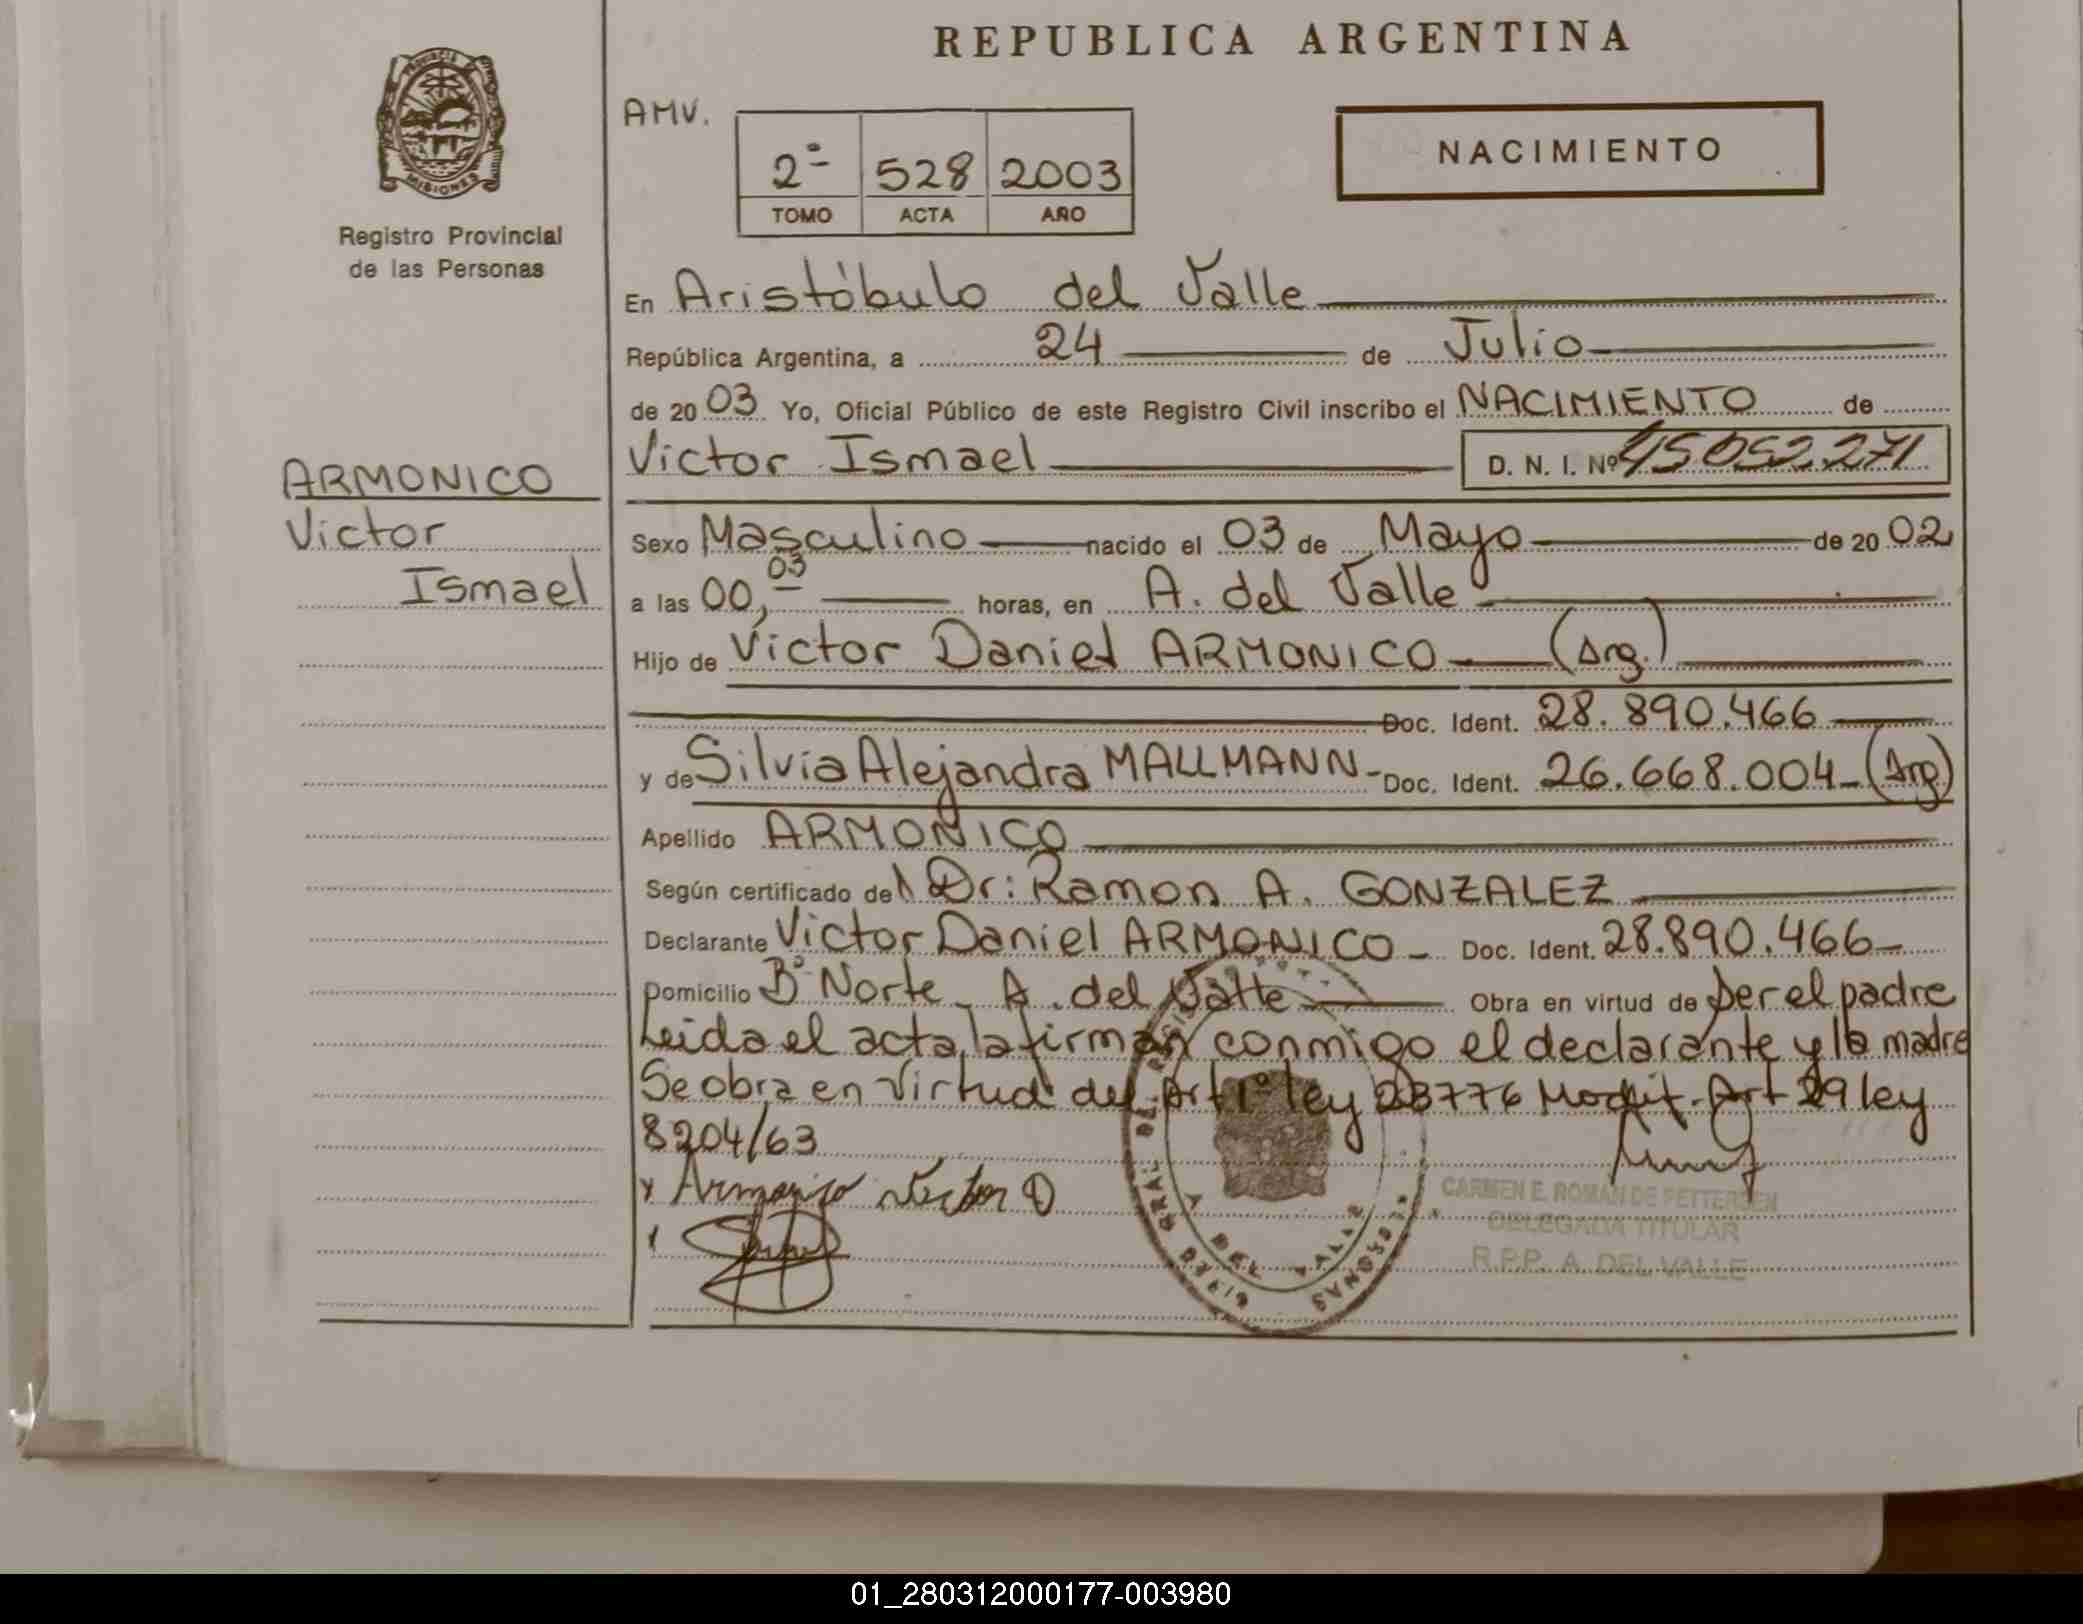 REPUBLICA ARGENTINA
PROVINCIA DE
MISIONES
Registro Provincial
de las Personas
AMV.
2º 528 2003
TOMO ACTA AÑO
NACIMIENTO
En Aristóbulo del Valle
República Argentina, a 24 de Julio
de 2003 Yo, Oficial Público de este Registro Civil inscribo el NACIMIENTO de
Victor Ismael D. N. I. Nº 45.052.271
ARMONICO
Victor
Ismael
Sexo Masculino nacido el 03 de Mayo de 2002
a las 00,03 horas, en A. del Valle
Hijo de Víctor Daniel ARMONICO (Arg.)
Doc. Ident. 28.890.466
y de Silvia Alejandra MALLMANN - Doc. Ident. 26.668.004 - (Arg)
Apellido ARMONICO
Según certificado del Dr: Ramon A. GONZALEZ
Declarante Victor Daniel ARMONICO - Doc. Ident. 28.890.466 -
Domicilio Bº Norte - A. del Valle Obra en virtud de ser el padre
Leida el acta, la firman conmigo el declarante y la madre
Se obra en virtud del Art 1º ley 23776 Modif. Art 29 ley
8204/63
x Armonico Victor D
CARMEN E. ROMAN DE PETTERSEN
DELEGADA TITULAR
R.P.P. A. DEL VALLE
A DEL VALLE
01_280312000177-003980